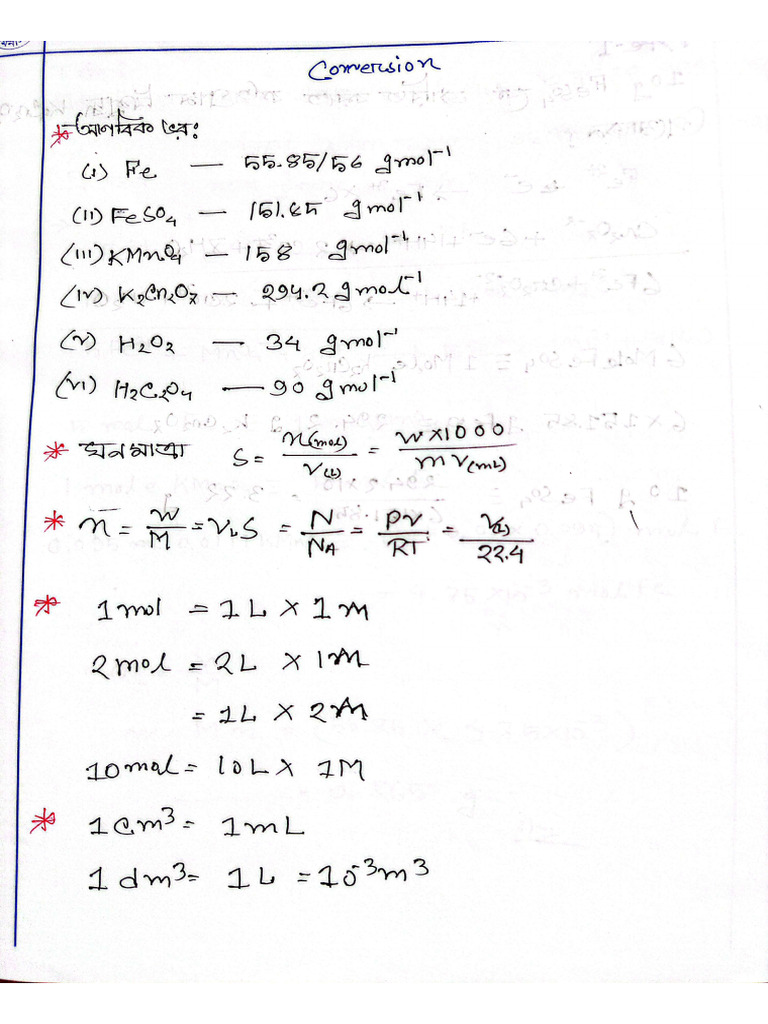 Conversion
* আণবিক ভর:
(i) Fe — 55.85/56 gmol⁻¹
(ii) FeSO₄ — 151.85 gmol⁻¹
(iii) KMnO₄ — 158 gmol⁻¹
(iv) K₂Cr₂O₇ — 294.2 gmol⁻¹
(v) H₂O₂ — 34 gmol⁻¹
(vi) H₂C₂O₄ — 90 gmol⁻¹
* ঘনমাত্রা S = n(mol)/V(L) = w×1000/mV(mL)
* n = w/M = V_L S = N/N_A = PV/RT = V(L)/22.4
* 1 mol = 1L × 1M
2 mol = 2L × 1M
= 1L × 2M
10 mol = 10L × 1M
* 1 cm³ = 1 mL
1 dm³ = 1L = 10⁻³m³